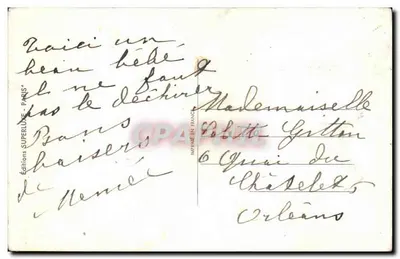 Voici un
beau bébé
il ne faut
pas le déchirer
Bons
baisers
de
Mémé
Mademoiselle
Gitton
6 Quai du
Châtelet
Orléans
Editions "SUPERLUXE - PARIS"